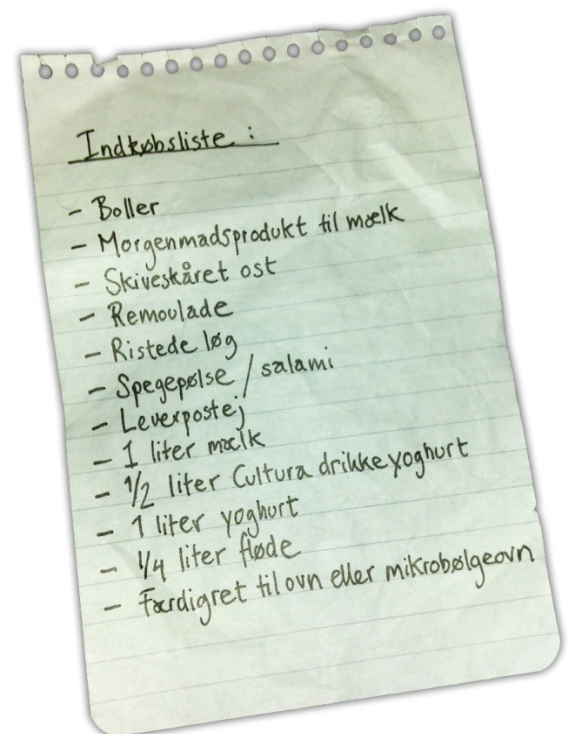 Indkøbsliste :
- Boller
- Morgenmadsprodukt til mælk
- Skiveskåret ost
- Remoulade
- Ristede løg
- Spegepølse / salami
- Leverpostej
- 1 liter mælk
- 1/2 liter Cultura drikkeyoghurt
- 1 liter yoghurt
- 1/4 liter fløde
- Færdigret til ovn eller mikrobølgeovn